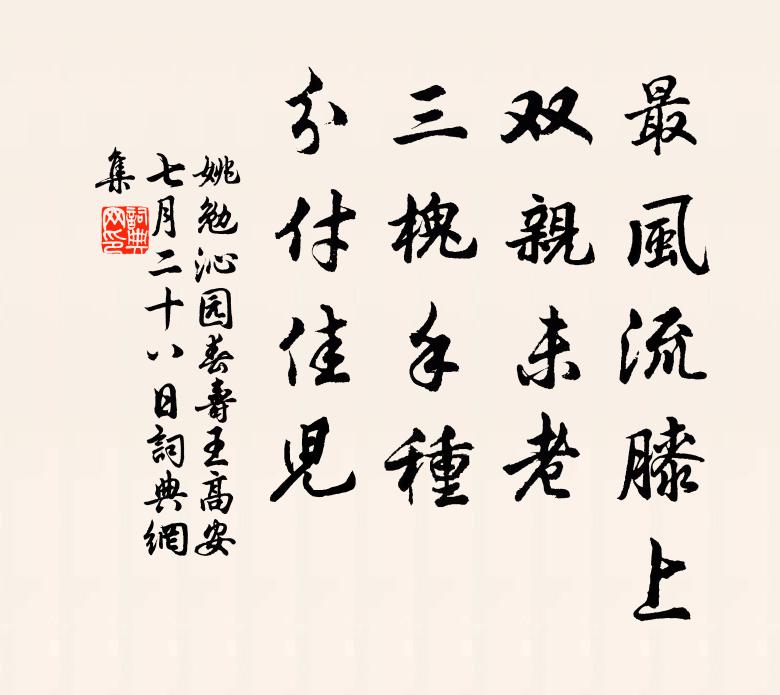 最風流膝上
双親未老
三槐手種
分付佳児
姚勉沁园春壽王高安
七月二十八日詞典網
集
詞典
网印